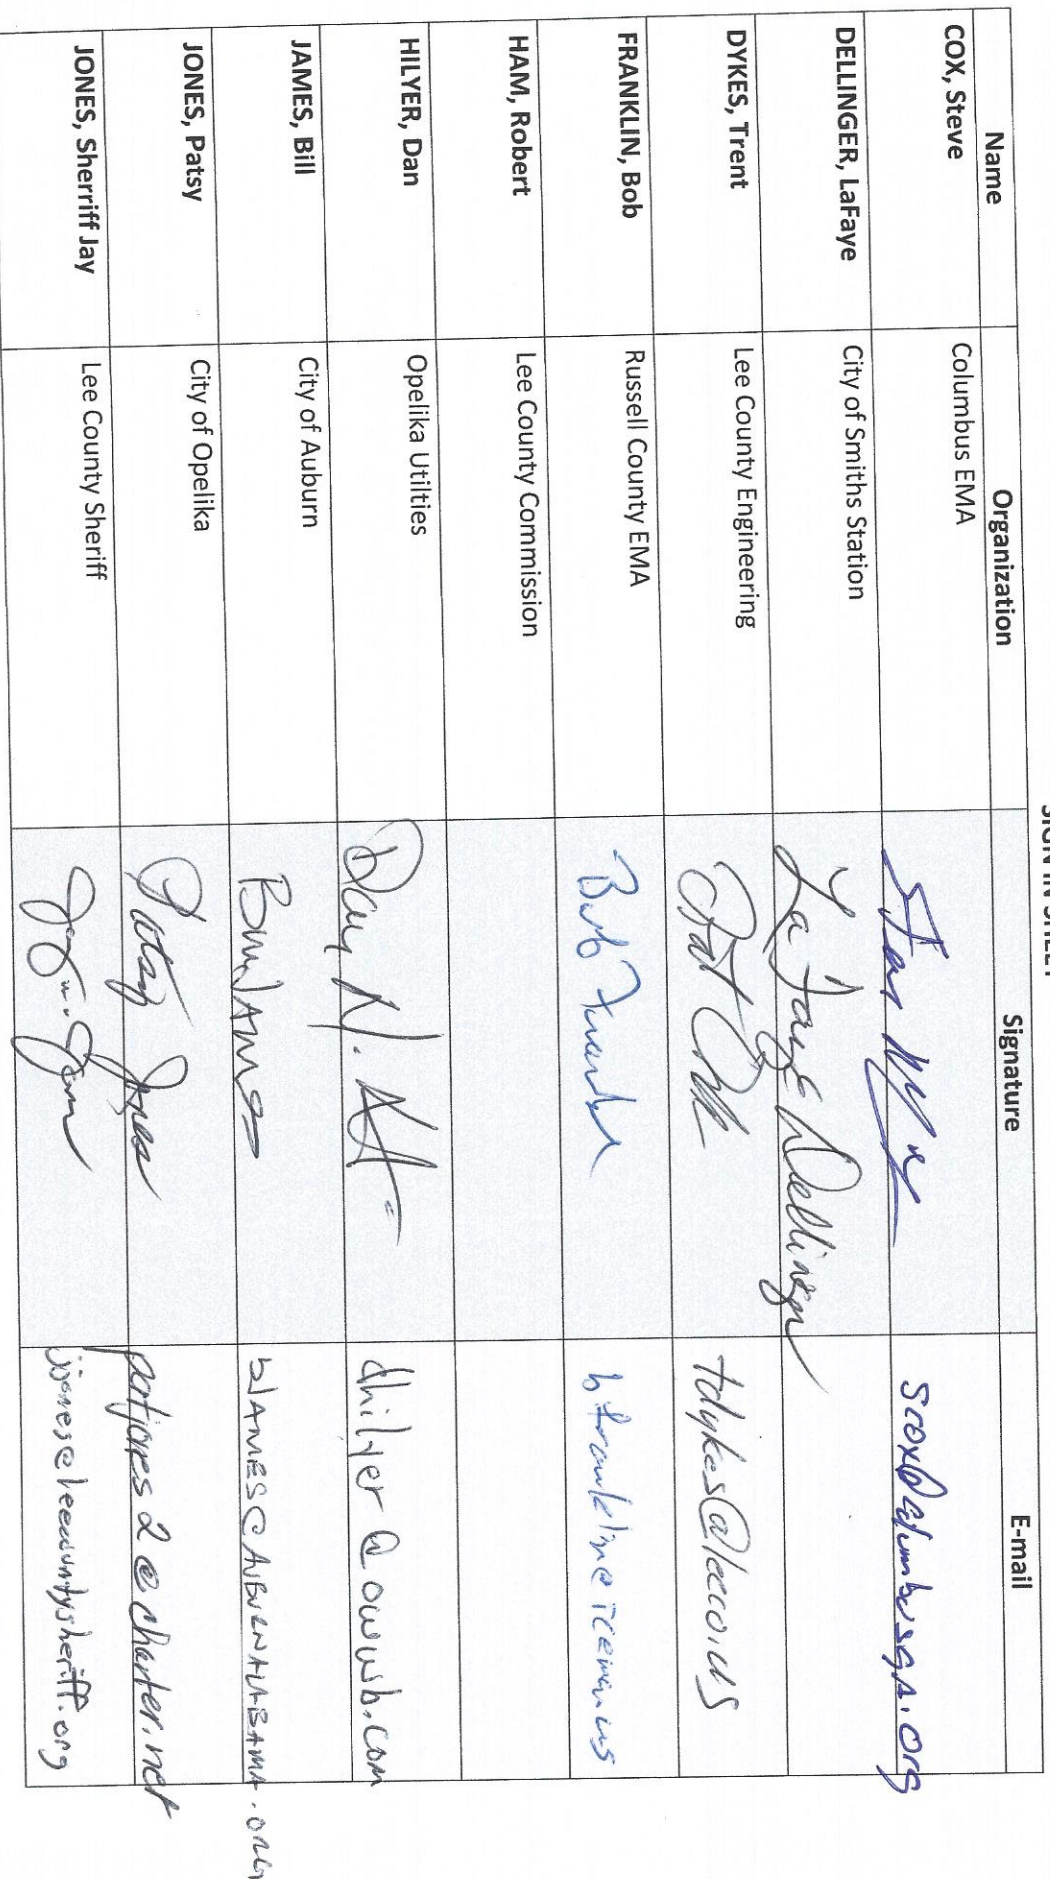 SIGN IN SHEET
Name Organization Signature E-mail
COX, Steve Columbus EMA scox@columbusga.org
DELLINGER, LaFaye City of Smiths Station LaFaye Dellinger
DYKES, Trent Lee County Engineering tdykes@leeco.us
FRANKLIN, Bob Russell County EMA Bob bfranklin@rcema.us
HAM, Robert Lee County Commission
HILYER, Dan Opelika Utilties Dan H. dhilyer@owwb.com
JAMES, Bill City of Auburn Bill James bJAMES@AUBURNALABAMA.ORG
JONES, Patsy City of Opelika Patsy Jones patjones2@charter.net
JONES, Sherriff Jay Lee County Sheriff Jay Jones jjones@leecountysheriff.org